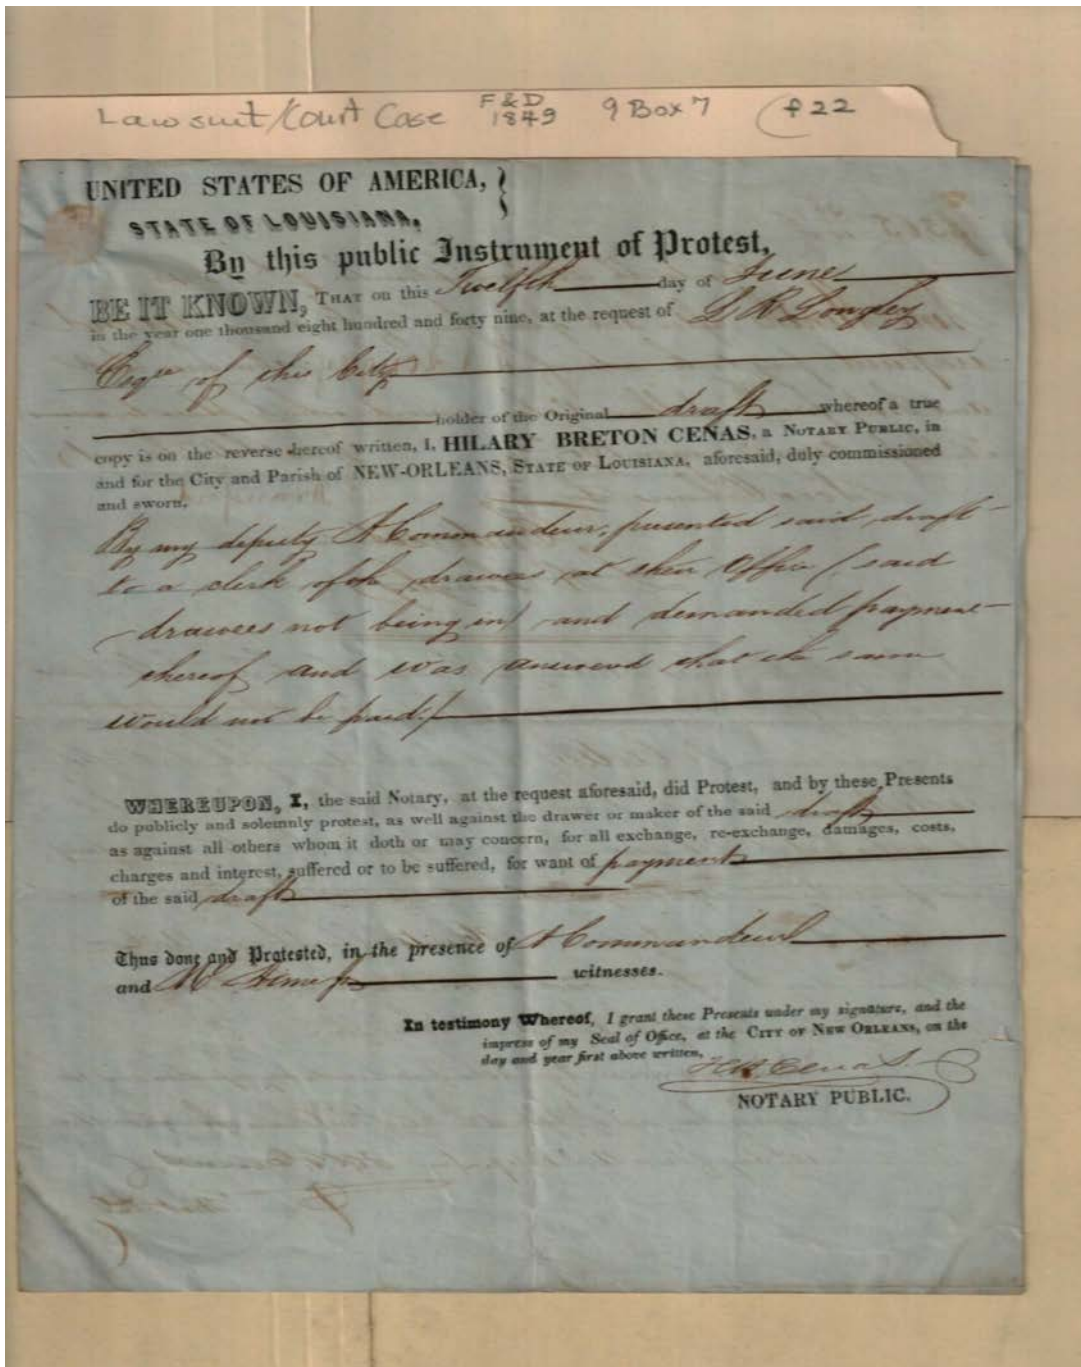 Lawsuit/Court Case F&D 1849 9 Box 7 f 22
UNITED STATES OF AMERICA,
STATE OF LOUISIANA,
By this public Instrument of Protest,
BE IT KNOWN, THAT on this Twelfth day of June
in the year one thousand eight hundred and forty nine, at the request of L R Longley
Esqre of this City
holder of the Original draft whereof a true
copy is on the reverse hereof written, I, HILARY BRETON CENAS, a NOTARY PUBLIC, in
and for the City and Parish of NEW-ORLEANS, STATE OF LOUISIANA, aforesaid, duly commissioned
and sworn,
By my deputy A Commandeur, presented said draft
to a clerk of the drawees at their Office (said
drawees not being in) and demanded payment
thereof and was answered that the same
would not be paid.
WHEREUPON, I, the said Notary, at the request aforesaid, did Protest, and by these Presents
do publicly and solemnly protest, as well against the drawer or maker of the said draft
as against all others whom it doth or may concern, for all exchange, re-exchange, damages, costs,
charges and interest, suffered or to be suffered, for want of payment
of the said draft
Thus done and Protested, in the presence of A Commandeur
and witnesses.
In testimony Whereof, I grant these Presents under my signature, and the
impress of my Seal of Office, at the CITY OF NEW ORLEANS, on the
day and year first above written,
H B Cenas
NOTARY PUBLIC.